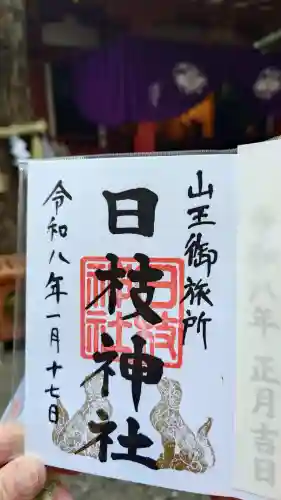 山王御旅所
日枝神社
日枝神社
令和八年一月十七日
令和八年 正月吉日